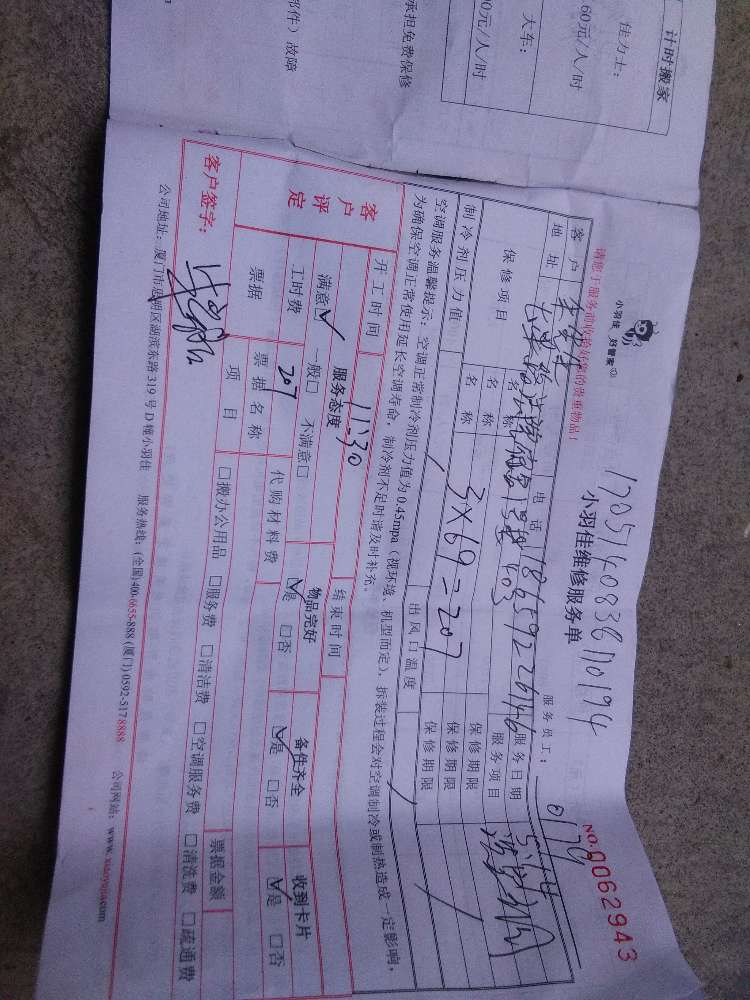 计时搬家
佳力士:
60元/人/时
大车:
0元/人/时
承担免费保修
部件）故障
小羽佳 好管家
17051408381170194
请您于服务前收拾好您的贵重物品!
小羽佳维修服务单
NO.0062943
服务员工: 0178
客户 电话 18659226146 服务日期
地址 1号楼 403 服务项目
保修项目 名称 保修期限
名称 3×69=207 保修期限
名称 保修期限
制冷剂压力值 出风口温度
空调服务温馨提示：空调正常制冷剂压力值为0.45mpa（视环境、机型而定），拆装过程会对空调制冷或制热造成一定影响，
为确保空调正常使用延长空调寿命，制冷剂不足时请及时补充。
开工时间 11:30 结束时间
客户评定
服务态度 物品完好 备件齐全 收到卡片
满意☑ 一般□ 不满意□ ☑是 □否 ☑是 □否 ☑是 □否
工时费 207 代购材料费
票据 票据名称 票据金额
项目 □搬办公用品 □服务费 □清洁费 □空调服务费 □清洗费 □疏通费
客户签字:
公司地址: 厦门市思明区湖滨东路319号D幢小羽佳 服务热线: (全国)400-6655-888 (厦门) 0592-5178888 公司网站: www.xiaoyujia.com